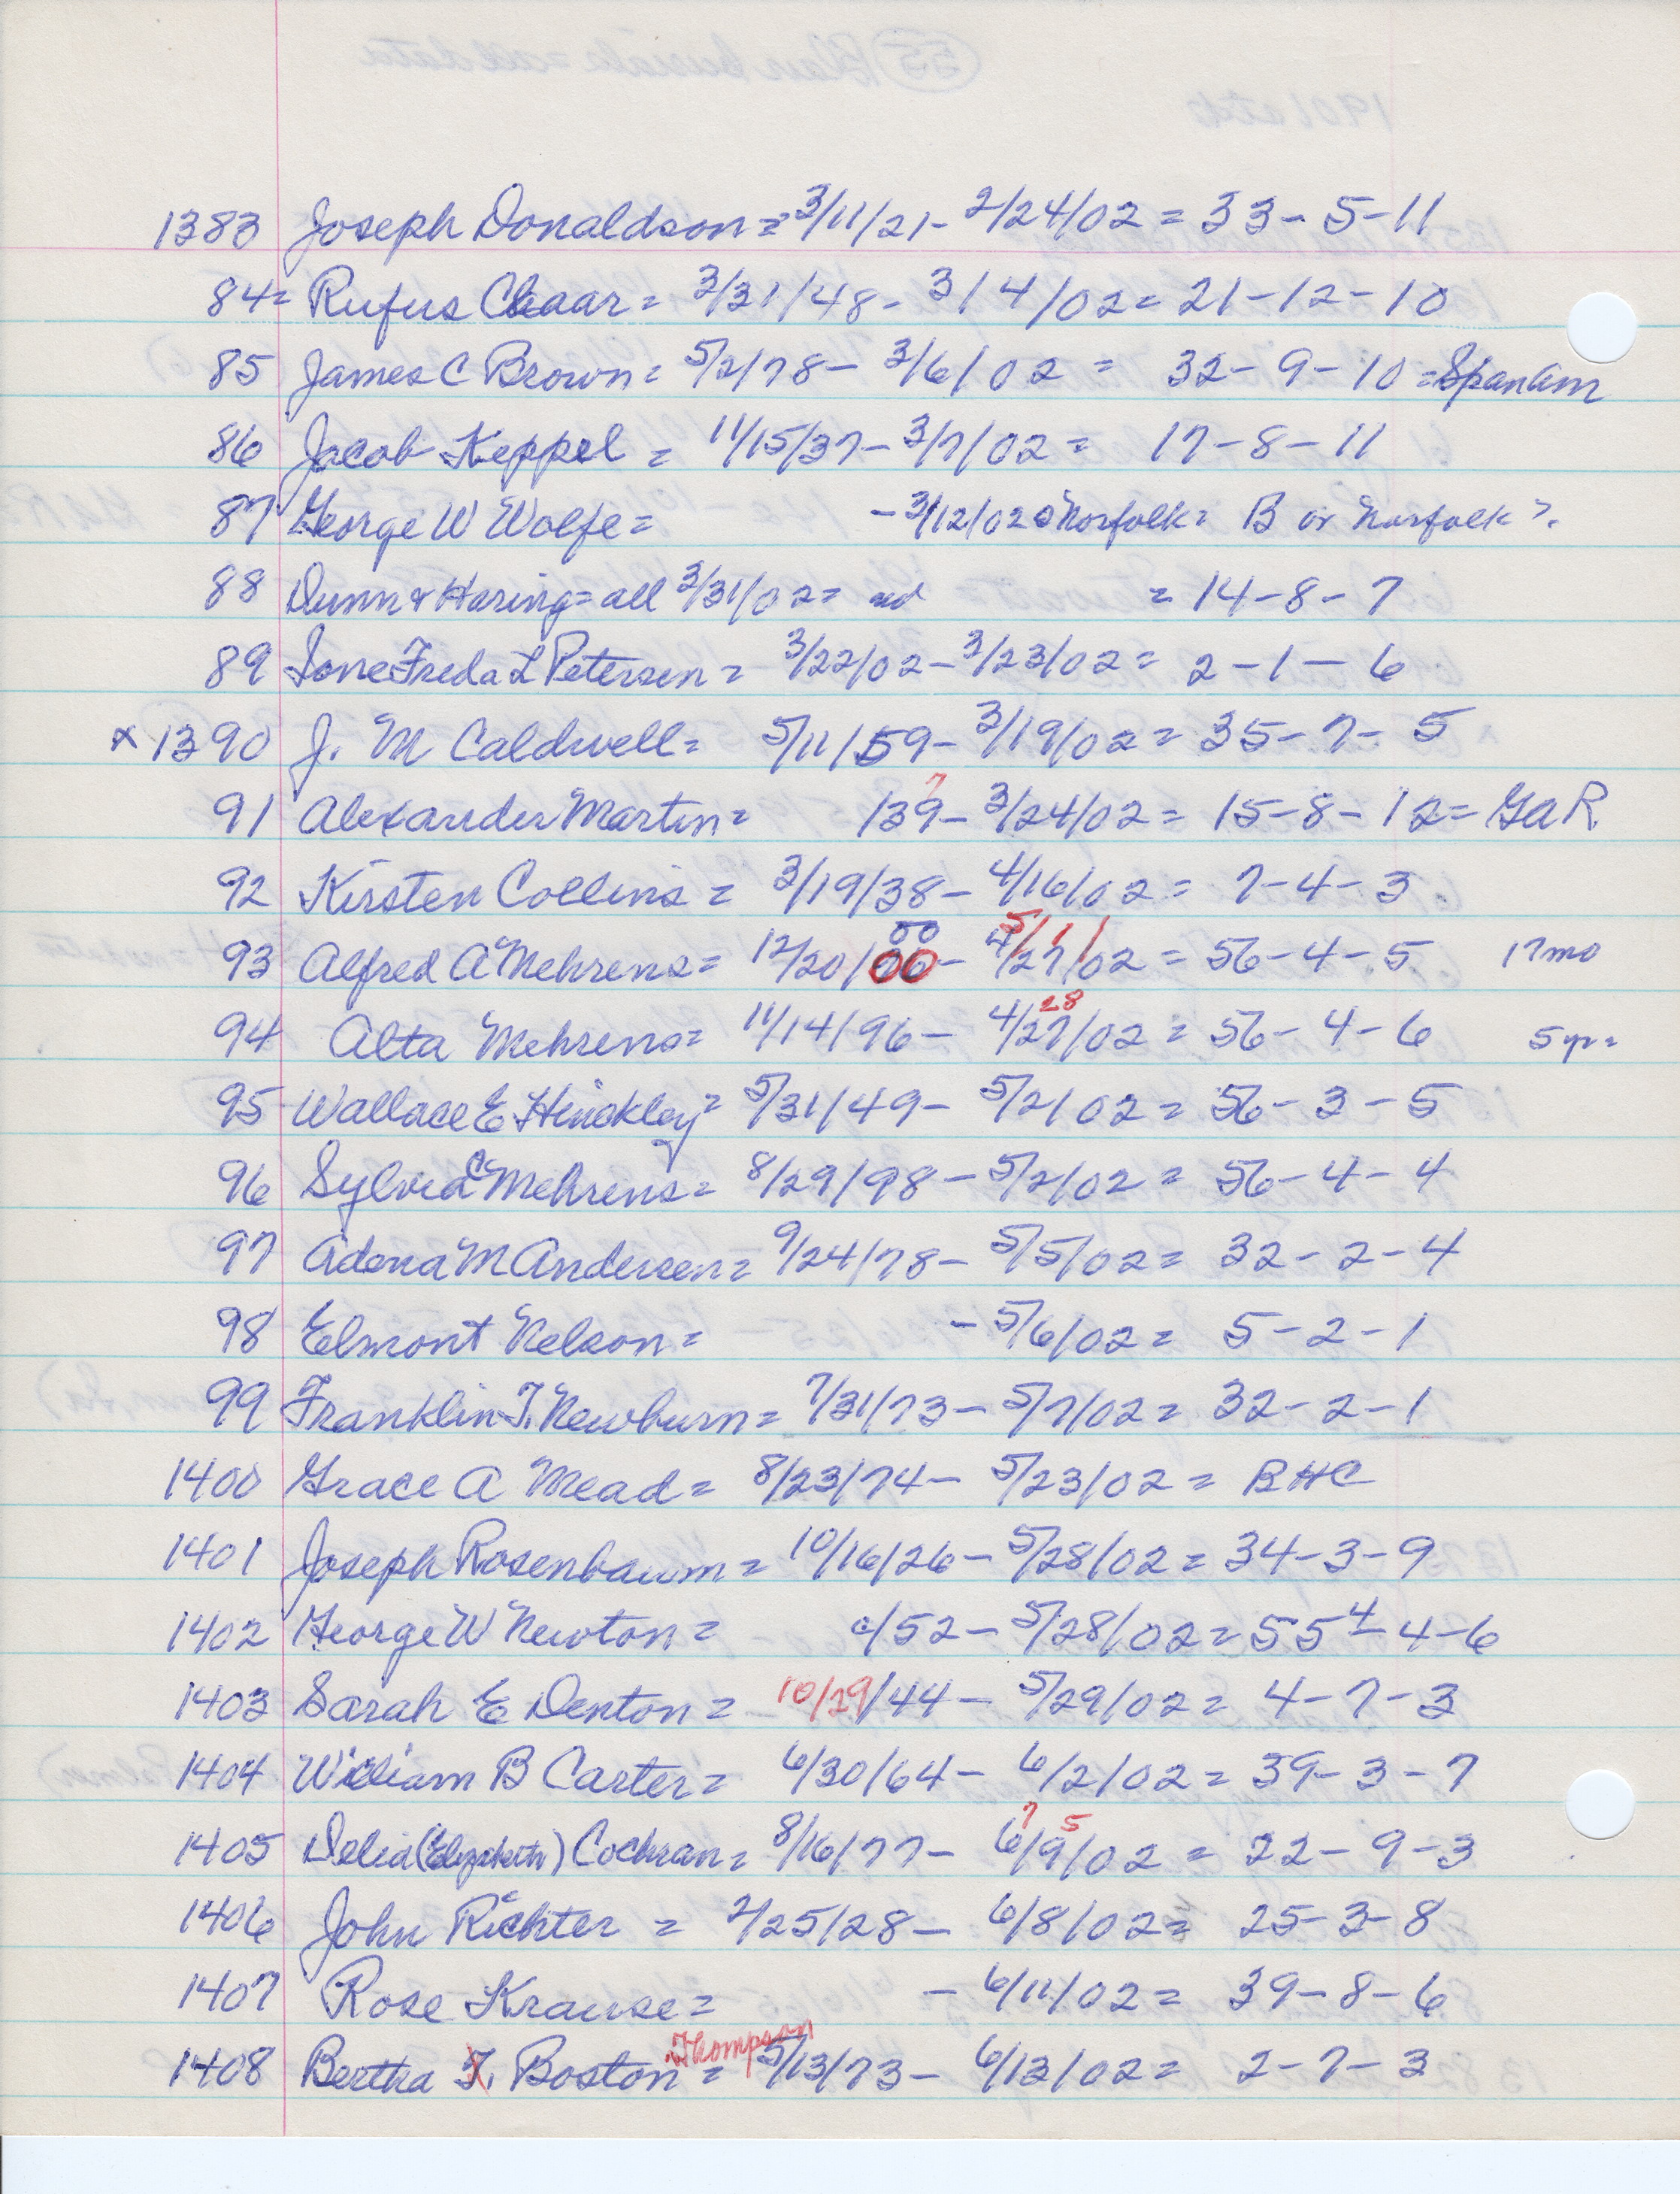 1383 Joseph Donaldson = 3/11/21 - 2/24/02 = 33 - 5 - 11
84 = Rufus Chaar = 3/31/48 - 3/4/02 = 21 - 12 - 10
85 James C Brown = 5/2/78 - 3/6/02 = 32 - 9 - 10 = Span Am
86 Jacob Keppel = 11/15/37 - 3/7/02 = 17 - 8 - 11
87 George W Wolfe = - 3/12/02 Norfolk = B or Norfolk ?
88 Dunn & Haring = all 3/31/02 = nd = 14 - 8 - 7
89 Ione Freda L Petersen = 3/22/02 - 3/23/02 = 2 - 1 - 6
x 1390 J. M Caldwell = 5/11/59 - 3/19/02 = 35 - 7 - 5
91 Alexander Martin = /39 - 3/24/02 = 15 - 8 - 12 = GAR
7
92 Kirsten Collins = 3/19/38 - 4/16/02 = 7 - 4 - 3
93 Alfred A Mehrens = 12/20/00 - 4/27/02 = 56 - 4 - 5 17 mo
00 5/1/
94 Alta Mehrens = 11/14/96 - 4/27/02 = 56 - 4 - 6 5 yr =
28
95 Wallace E Hinckley = 5/31/49 - 5/2/02 = 56 - 3 - 5
96 Sylvia C Mehrens = 8/29/98 - 5/2/02 = 56 - 4 - 4
97 Adena M Andersen = 9/24/78 - 5/5/02 = 32 - 2 - 4
98 Elmont Nelson = - 5/6/02 = 5 - 2 - 1
99 Franklin T. Newburn = 7/31/73 - 5/7/02 = 32 - 2 - 1
1400 Grace A Mead = 8/23/74 - 5/23/02 = BHC
1401 Joseph Rosenbaum = 10/16/26 - 5/28/02 = 34 - 3 - 9
1402 George W Newton = c/52 - 5/28/02 = 55 4 - 4 - 6
1403 Sarah E Denton = 10/19/44 - 5/29/02 = 4 - 7 - 3
1404 William B Carter = 6/30/64 - 6/2/02 = 39 - 3 - 7
1405 Delia (Elizabeth) Cochran = 8/16/77 - 6/9/02 = 22 - 9 - 3
7 5
1406 John Richter = 2/25/28 - 6/8/02 = 25 - 3 - 8
1407 Rose Krause = - 6/11/02 = 39 - 8 - 6
1408 Bertha T. Boston = 5/13/73 - 6/13/02 = 2 - 7 - 3
Thompson